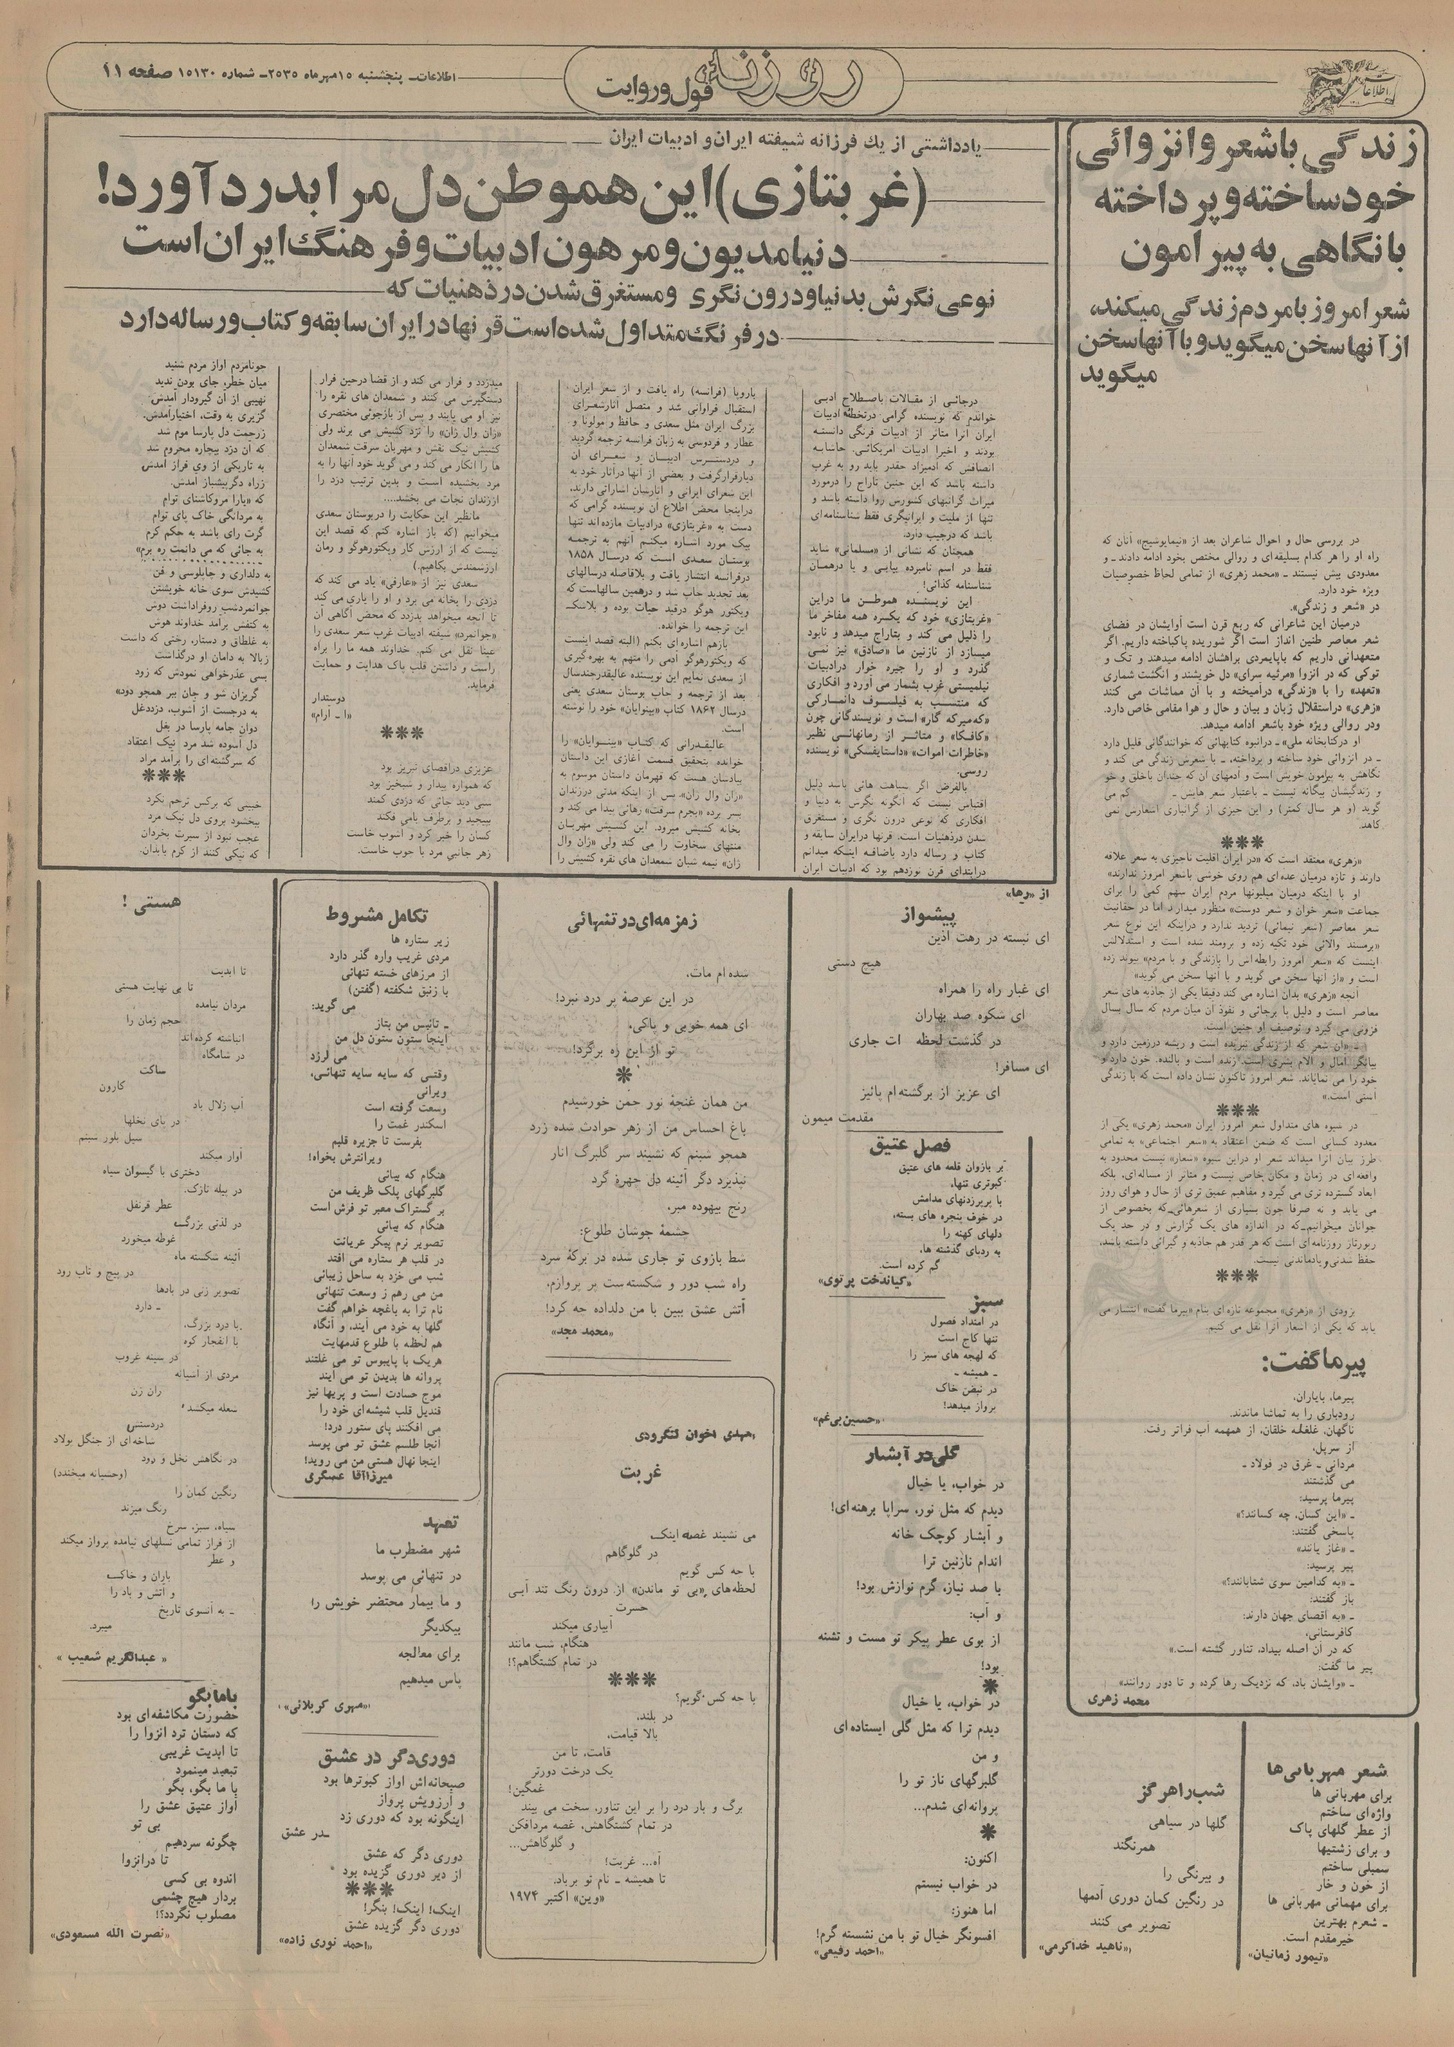 اطلاعات
روزنه
قول و روایت
اطلاعات ـ پنجشنبه ۱۵ مهرماه ۲۵۳۵ ـ شماره ۱۵۱۳۰ صفحه ۱۱
زندگی باشعر و انزوائی
خودساخته و پرداخته
بانگاهی به پیرامون
شعر امروز بامردم زندگی میکند،
از آنها سخن میگوید و با آنها سخن
میگوید
در بررسی حال و احوال شاعران بعد از «نیمایوشیج» آنان که
راه او را هر کدام بسلیقه‌ای و روالی مختص بخود ادامه دادند ـ و
معدودی بیش نیستند ـ «محمد زهری» از تمامی لحاظ خصوصیات
ویژه خود دارد.
در «شعر و زندگی».
درمیان این شاعرانی که ربع قرن است آوایشان در فضای
شعر معاصر طنین انداز است اگر شوریده پاکباخته داریم، اگر
متعهدانی داریم که باپایمردی براهشان ادامه میدهند و تک و
توکی که در انزوا «مرثیه سرای» دل خویشند و انگشت شماری
«تعهد» را با «زندگی» درآمیخته و با آن مماشات می کنند
«زهری» دراستقلال زبان و بیان و حال و هوا مقامی خاص دارد.
ودر روالی ویژه خود باشعر ادامه میدهد.
او درکتابخانه ملی» ـ درانبوه کتابهائی که خوانندگانی قلیل دارد
ـ در انزوائی خود ساخته و پرداخته، ـ با شعرش زندگی می کند و
***
«زهری» معتقد است که «در ایران اقلیت ناچیزی به شعر علاقه
دارند و تازه درمیان عده‌ای هم روی خوشی باشعر امروز ندارند»
او با اینکه درمیان میلیونها مردم ایران سهم کمی را برای
جماعت «شعر خوان و شعر دوست» منظور میدارد اما در حقانیت
شعر معاصر (شعر نیمائی) تردید ندارد و دراینکه این نوع شعر
***
در شیوه های متداول شعر امروز ایران «محمد زهری» یکی از
معدود کسانی است که ضمن اعتقاد به «شعر اجتماعی» به تمامی
***
بزودی از «زهری» مجموعه تازه‌ای بنام «پیرما گفت» انتشار می
یابد که یکی از اشعار آنرا نقل می کنیم.
پیرما گفت:
پیرما، بایاران،
رودباری را به تماشا ماندند.
ناگهان، غلغله خلقان، از همهمه آب فراتر رفت.
از سرپل،
مردانی ـ غرق در فولاد ـ
می گذشتند
پیرما پرسید:
ـ «این کسان، چه کسانند؟»
پاسخی گفتند:
ـ «غاز یانند»
پیر پرسید:
ـ «به کدامین سوی شتابانند؟»
باز گفتند:
ـ «به اقصای جهان دارند:
کافرستانی،
که در آن اصله بیداد، تناور گشته است.»
پیر ما گفت:
ـ «وایشان باد، که نزدیک رها کرده و تا دور روانند»
محمد زهری
یادداشتی از یک فرزانه شیفته ایران و ادبیات ایران
(غربتازی) این هموطن دل مرا بدرد آورد!
دنیا مدیون و مرهون ادبیات و فرهنگ ایران است
نوعی نگرش بدنیا و درون نگری و مستغرق شدن در ذهنیات که
در فرنگ متداول شده است قرنها در ایران سابقه و کتاب و رساله دارد
درجائی از مقالات باصطلاح ادبی
خواندم که نویسنده گرامی درتخطئه ادبیات
ایران آنرا متاثر از ادبیات فرنگی دانسته
بودند و اخیرا ادبیات آمریکائی. حاشا به
انصافش که آدمیزاد حقدر باید رو به غرب
داشته باشد که این چنین تاراج را درمورد
میراث گرانبهای کشورش روا داشته باشد و
تنها از ملیت و ایرانیگری فقط شناسنامه‌ای
باشد که درجیب دارد.
همچنان که نشانی از «مسلمانی» شاید
فقط در اسم نامبرده بیابی و یا درهمان
شناسنامه کذائی!
این نویسنده هموطن ما دراین
«غربتازی» خود که یکسره همه مفاخر ما
را ذلیل می کند و بتاراج میدهد و نابود
میسازد از نازنین ما «صادق» نیز نمی
گذرد و او را جیره خوار درادبیات
نیلمیستی غرب بشمار می آورد و افکاری
که منتسب به فیلسوف دانمارکی
«که‌یرکه گار» است و نویسندگانی چون
«کافکا» و متاثر از رمانهائی نظیر
«خاطرات اموات» «داستایفسکی» نویسنده
روسی.
بالفرض اگر شباهت هائی باشد دلیل
اقتباس نیست که آنگونه نگرش به دنیا و
افکاری که نوعی درون نگری و مستغرق
شدن درذهنیات است. قرنها درایران سابقه و
کتاب و رساله دارد باضافه اینکه میدانم
درابتدای قرن نوزدهم بود که ادبیات ایران
باروپا (فرانسه) راه یافت و از شعر ایران
استقبال فراوانی شد و متصل آثارشعرای
بزرگ ایران مثل سعدی و حافظ و مولانا و
عطار و فردوسی به زبان فرانسه ترجمه گردید
و دردسترس ادیبان و شعرای آن
دیارقرارگرفت و بعضی از آنها درآثار خود به
این شعرای ایرانی و آثارشان اشاراتی دارند.
دراینجا محض اطلاع آن نویسنده گرامی که
دست به «غربتازی» درادبیات مازده‌اند تنها
بیک مورد اشاره میکنم آنهم به ترجمه
بوستان سعدی است که درسال ۱۸۵۸
درفرانسه انتشار یافت و بلافاصله درسالهای
بعد تجدید چاپ شد و درهمین سالهاست که
ویکتور هوگو درقید حیات بوده و بلاشک
این ترجمه را خوانده.
بازهم اشاره‌ای بکنم (البته قصد اینست
که ویکتورهوگو آدمی را متهم به بهره‌گیری
از سعدی نمایم این نویسنده عالیقدرچندسال
بعد از ترجمه و چاپ بوستان سعدی یعنی
درسال ۱۸۶۲ کتاب «بینوایان» خود را نوشته
است.
عالیقدرانی که کتاب «بینوایان» را
خوانده بتحقیق قسمت آغازی این داستان
بیادشان هست که قهرمان داستان موسوم به
«ژان وال ژان»، پس از اینکه مدتی درزندان
بسر برده «بجرم سرقت» رهائی پیدا می کند و
بخانه کشیش میرود. این کشیش مهربان
منتهای سخاوت را می کند ولی «ژان وال
ژان» نیمه شبان شمعدان های نقره کشیش را
میدزدد و فرار می کند و از قضا درحین فرار
دستگیرش می کنند و شمعدان های نقره را
نیز او می یابند و پس از بازجوئی مختصری
«ژان وال ژان» را نزد کشیش می برند ولی
کشیش نیک نفش و مهربان سرقت شمعدان
ها را انکار می کند و می گوید خود آنها را به
مرد بخشیده است و بدین ترتیب دزد را
اززندان نجات می بخشد....
مانظیر این حکایت را دربوستان سعدی
میخوانیم (که باز اشاره کنم که قصد این
نیست که از ارزش کار ویکتورهوگو و رمان
ارزشمندش بکاهیم.)
سعدی نیز از «عارفی» یاد می کند که
دزدی را بخانه می برد و او را یاری می کند
تا آنچه میخواهد بدزدد که محض آگاهی آن
«جوانمرد» شیفته ادبیات غرب شعر سعدی را
عینا نقل می کنم. خداوند همه ما را براه
راست و داشتن قلب پاک هدایت و حمایت
فرماید.
دوستدار
«ا ـ آرام»
***
عزیزی دراقصای تبریز بود
که همواره بیدار و شبخیز بود
شبی دید جائی که دزدی کمند
بپیچید و برطرف بامی فکند
کسان را خبر کرد و آشوب خاست
زهر جانبی مرد با چوب خاست.
جونامردم آواز مردم شنید
میان خطر، جای بودن ندید
نهیبی از آن گیرودار آمدش
گزیری به وقت، اختیارآمدش.
زرحمت دل پارسا موم شد
که آن دزد بیچاره محروم شد
به تاریکی از وی فراز آمدش
زراه دگرپیشباز آمدش.
که «یارا مروکاشنای توام
به مردانگی خاک پای توام
گرت رای باشد به حکم کرم
به جائی که می دانمت ره برم»
به دلداری و چاپلوسی و فن
کشیدش سوی خانه خویشتن
جوانمردشب روفراداشت دوش
به کتفش برآمد خداوند هوش
به غلطاق و دستار، رختی که داشت
زبالا به دامان او درگذاشت
گریزان شو و جان ببر همچو دود»
به درجست از آشوب، دزددغل
دوان جامه پارسا در بغل
دل آسوده شد مرد نیک اعتقاد
که سرگشته‌ای را برآمد مراد
***
خبیثی که برکس ترحم نکرد
ببخشود بروی دل نیک مرد
عجب نبود از سیرت بخردان
که نیکی کنند از کرم بابدان.
از «رها»
پیشواز
ای نبسته در رهت آذین
هیچ دستی
ای غبار راه را همراه
ای شکوه صد بهاران
در گذشت لحظه ات جاری
ای مسافر!
ای عزیز از برگشته‌ام پائیز
مقدمت میمون
فصل عتیق
بر بازوان قلعه های عتیق
کبوتری تنها،
با پرپرزدنهای مدامش
در خوف پنجره های بسته،
دلهای کهنه را
به ردبای گذشته ها،
گم کرده است.
«گیاندخت پرتوی»
سبز
در امتداد فصول
تنها کاج است
که لهجه های سبز را
ـ همیشه ـ
در نبض خاک
پرواز میدهد!
«حسین بی‌غم»
گلی در آبشار
در خواب، یا خیال
دیدم که مثل نور، سراپا برهنه‌ای!
و آبشار کوچک خانه
اندام نازنین ترا
با صد نیاز، گرم نوازش بود!
و آب:
از بوی عطر پیکر تو مست و تشنه
بود!
*
در خواب، یا خیال
دیدم ترا که مثل گلی ایستاده‌ای
و من
گلبرگهای ناز تو را
پروانه‌ای شدم...
*
اکنون:
در خواب نیستم
اما هنوز:
افسونگر خیال تو با من نشسته گرم!
«احمد رفیعی»
زمزمه‌ای در تنهائی
شده‌ام مات،
در این عرصهٔ پر درد نبرد!
ای همه خوبی و پاکی،
تو از این ره برگرد!
*
من همان غنچهٔ نور چمن خورشیدم
باغ احساس من از زهر حوادث شده زرد
همچو شبنم که نشیند سر گلبرگ انار
نپذیرد دگر آئینه دل چهرهٔ گرد
رنج بیهوده مبر،
چشمهٔ جوشان طلوع:
شط بازوی تو جاری شده در برکهٔ سرد
راه شب دور و شکسته‌ست پر پروازم،
آتش عشق ببین با من دلداده چه کرد!
«محمد مجد»
مهدی اخوان لنگرودی
غربت
می نشیند غصه اینک،
در گلوگاهم
با چه کس گویم
لحظه‌های «بی تو ماندن» از درون رنگ تند آبی
حسرت
آبیاری میکند
هنگام، شب مانند
در تمام کشتگاهم؟!
***
با چه کس گویم؟
در بلند،
بالا قیامت،
قامت، تا من
یک درخت دورتر
غمگین!
برگ و بار درد را بر این تناور، سخت می بیند
در تمام کشتگاهش، غصه مردافکن
و گلوگاهش...
آه... غربت!
تا همیشه ـ نام تو برباد.
«وین» اکتبر ۱۹۷۴
تکامل مشروط
زیر ستاره ها
مردی غریب واره گذر دارد
از مرزهای خسته تنهائی
با زنبق شکفته (گفتن)
می گوید:
ـ تائیس من بتاز
اینجا ستون ستون دل من
می لرزد
وقتی که سایه سایه تنهائی،
ویرانی
وسعت گرفته است
اسکندر غمت را
بفرست تا جزیره قلبم
ویرانترش بخواه!
هنگام که بیائی
گلبرگهای پلک ظریف من
بر گستراک معبر تو فرش است
هنگام که بیائی
تصویر نرم پیکر عریانت
در قلب هر ستاره می افتد
شب می خزد به ساحل زیبائی
من می رهم ز وسعت تنهائی
نام ترا به باغچه خواهم گفت
گلها به خود می آیند، و آنگاه
هم لحظه با طلوع قدمهایت
هریک با پایبوس تو می غلتند
پروانه ها بدیدن تو می آیند
موج حسادت است و پریها نیز
قندیل قلب شیشه‌ای خود را
می افکنند پای ستور درد!
آنجا طلسم عشق تو می پوسد
اینجا نهال هستی من می روید!
میرزاآقا عسگری
تعهد
شهر مضطرب ما
در تنهائی می پوسد
و ما بیمار محتضر خویش را
بیکدیگر
برای معالجه
پاس میدهیم
«مهری کربلائی»
دوری دگر در عشق
صبحانه‌اش آواز کبوترها بود
و آرزویش پرواز
اینگونه بود که دوری زد
ـ در عشق
دوری دگر که عشق
از دیر دوری گزیده بود
***
اینک! اینک! بنگر!
دوری دگر گزیده عشق
«احمد نوری زاده»
هستی !
تا ابدیت
تا بی نهایت هستی
مردان نیامده
حجم زمان را
انباشته کرده‌اند
در شامگاه
ساکت
کارون
آب زلال باد
در پای نخلها
سیل بلور شبنم
آوار میکند
دختری با گیسوان سیاه
در پیله نازک،
عطر قرنفل
در لذتی بزرگ
غوطه میخورد
آئینه شکسته ماه
در پیچ و تاب رود
تصویر زنی در بادها
ـ دارد
با درد بزرگ،
با انفجار کوه
در سینه غروب
مردی از آشیانه
ران زن
شعله میکشد
دردستش
شاخه‌ای از جنگل پولاد
در نگاهش نخل و رود
(وحشیانه میخندد)
رنگین کمان را
رنگ میزند
سیاه، سبز، سرخ
از فراز تمامی نسلهای نیامده پرواز میکند
و عطر
باران و خاکسه
و آتش و باد را
ـ به آنسوی تاریخ
میبرد.
« عبدالکریم شعیب »
باما بگو
حضورت مکاشفه‌ای بود
که دستان ترد انزوا را
تا ابدیت غریبی
تبعید مینمود
با ما بگو، بگو
آواز عتیق عشق را
بی تو
چگونه سردهیم
تا درانزوا
اندوه بی کسی
بردار هیچ چشمی
مصلوب نگردد؟!
«نصرت الله مسعودی»
شب را هرگز
گلها در سیاهی
همرنگند
و بیرنگی را
در رنگین کمان دوری آدمها
تصویر می کنند
«ناهید خداکرمی»
شعر مهربانی‌ها
برای مهربانی ها
واژه‌ای ساختم
از عطر گلهای پاک
و برای زشتیها
سمبلی ساختم
از خون و خار
برای مهمانی مهربانی ها
ـ شعرم بهترین
خیرمقدم است.
«تیمور زمانیان»